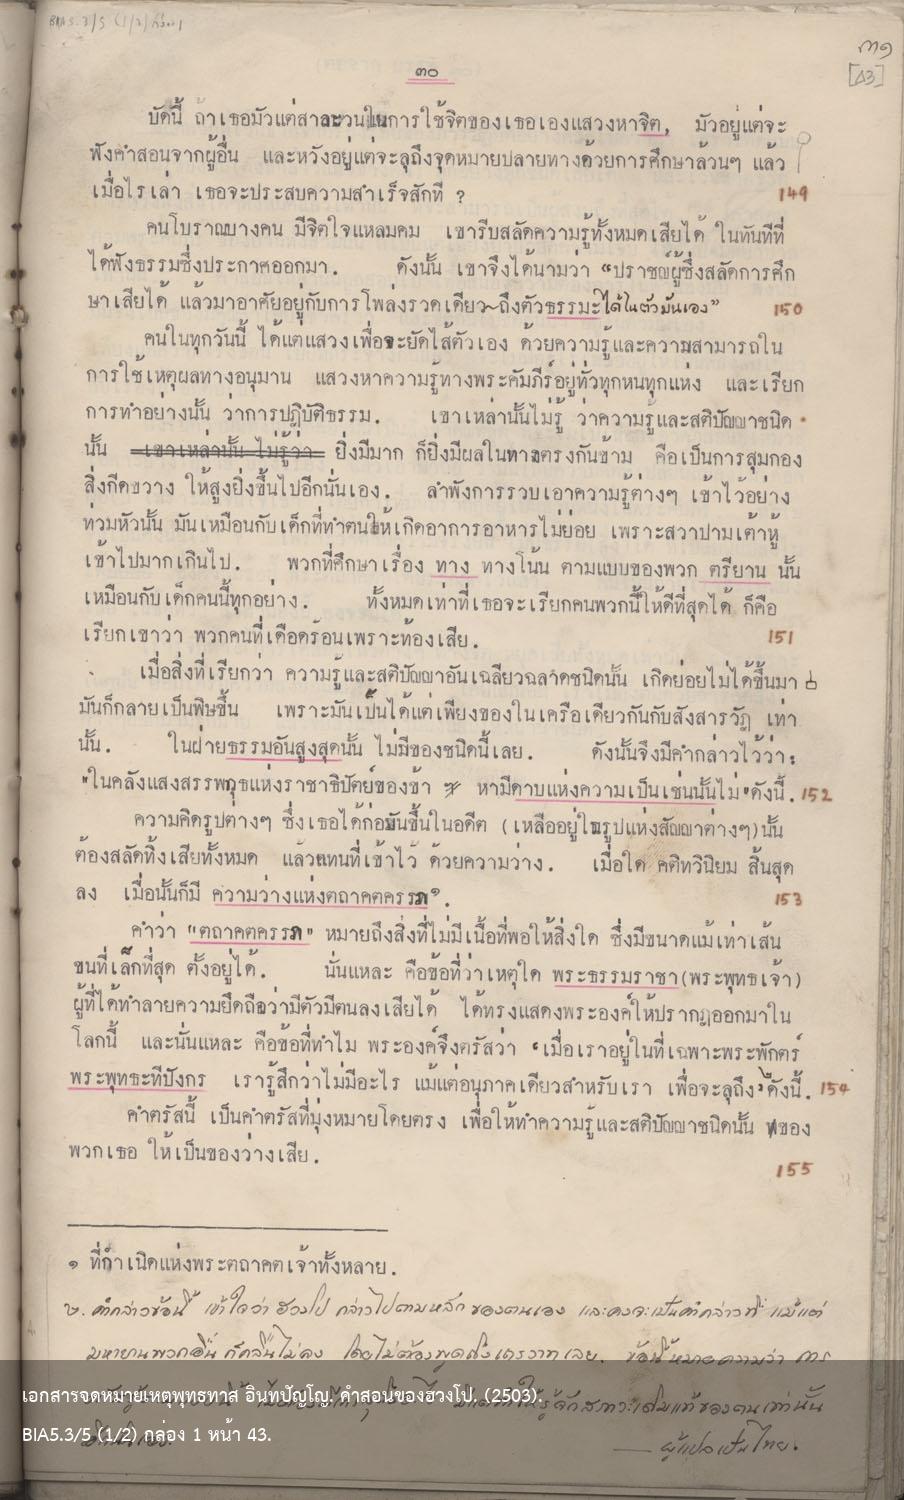 BIA5.3/5 (1/2) กล่อง 1
๓๑
[43]
๓๐
บัดนี้ ถ้าเธอมัวแต่สาละวนในการใช้จิตของเธอเองแสวงหาจิต, มัวอยู่แต่จะ
ฟังคำสอนจากผู้อื่น และหวังอยู่แต่จะลุถึงจุดหมายปลายทางด้วยการศึกษาล้วนๆ แล้ว
เมื่อไรเล่า เธอจะประสบความสำเร็จสักที ? 149
คนโบราณบางคน มีจิตใจแหลมคม เขารีบสลัดความรู้ทั้งหมดเสียได้ ในทันทีที่
ได้ฟังธรรมซึ่งประกาศออกมา. ดังนั้น เขาจึงได้นามว่า "ปราชญ์ผู้ซึ่งสลัดการศึก
ษาเสียได้ แล้วมาอาศัยอยู่กับการโพล่งรวดเดียว ถึงตัวธรรมะได้ในตัวมันเอง" 150
คนในทุกวันนี้ ได้แต่แสวงเพื่อจะยัดไส้ตัวเอง ด้วยความรู้และความสามารถใน
การใช้เหตุผลทางอนุมาน แสวงหาความรู้ทางพระคัมภีร์อยู่ทั่วทุกหนทุกแห่ง และเรียก
การทำอย่างนั้น ว่าการปฏิบัติธรรม. เขาเหล่านั้นไม่รู้ ว่าความรู้และสติปัญญาชนิด
นั้น เขาเหล่านั้น ไม่รู้ว่า ยิ่งมีมาก ก็ยิ่งมีผลในทางตรงกันข้าม คือเป็นการสุมกอง
สิ่งกีดขวาง ให้สูงยิ่งขึ้นไปอีกนั่นเอง. ลำพังการรวบเอาความรู้ต่างๆ เข้าไว้อย่าง
ท่วมหัวนั้น มันเหมือนกับเด็กที่ทำตนให้เกิดอาการอาหารไม่ย่อย เพราะสวาปามเต้าหู้
เข้าไปมากเกินไป. พวกที่ศึกษาเรื่อง ทาง ทางโน้น ตามแบบของพวก ตรียาน นั้น
เหมือนกับเด็กคนนี้ทุกอย่าง. ทั้งหมดเท่าที่เธอจะเรียกคนพวกนี้ให้ดีที่สุดได้ ก็คือ
เรียกเขาว่า พวกคนที่เดือดร้อนเพราะท้องเสีย. 151
เมื่อสิ่งที่เรียกว่า ความรู้และสติปัญญาอันเฉลียวฉลาดชนิดนั้น เกิดย่อยไม่ได้ขึ้นมา
มันก็กลายเป็นพิษขึ้น เพราะมันเป็นได้แต่เพียงของในเครือเดียวกันกับสังสารวัฏ เท่า
นั้น. ในฝ่ายธรรมอันสูงสุดนั้น ไม่มีของชนิดนี้เลย. ดังนั้นจึงมีคำกล่าวไว้ว่า:
"ในคลังแสงสรรพวุธแห่งราชาธิปัตย์ของข้า หามีดาบแห่งความเป็นเช่นนั้นไม่"ดังนี้. 152
ความคิดรูปต่างๆ ซึ่งเธอได้ก่อมันขึ้นในอดีต (เหลืออยู่ในรูปแห่งสัญญาต่างๆ)นั้น
ต้องสลัดทิ้งเสียทั้งหมด แล้วแทนที่เข้าไว้ ด้วยความว่าง. เมื่อใด คติทวินิยม สิ้นสุด
ลง เมื่อนั้นก็มี ความว่างแห่งตถาคตครรภ๑. 153
คำว่า "ตถาคตครรภ" หมายถึงสิ่งที่ไม่มีเนื้อที่พอให้สิ่งใด ซึ่งมีขนาดแม้เท่าเส้น
ขนที่เล็กที่สุด ตั้งอยู่ได้. นั่นแหละ คือข้อที่ว่าเหตุใด พระธรรมราชา(พระพุทธเจ้า)
ผู้ที่ได้ทำลายความยึดถือว่ามีตัวมีตนลงเสียได้ ได้ทรงแสดงพระองค์ให้ปรากฏออกมาใน
โลกนี้ และนั่นแหละ คือข้อที่ทำไม พระองค์จึงตรัสว่า "เมื่อเราอยู่ในที่เฉพาะพระพักตร์
พระพุทธะทีปังกร เรารู้สึกว่าไม่มีอะไร แม้แต่อนุภาคเดียวสำหรับเรา เพื่อจะลุถึง"ดังนี้. 154
คำตรัสนี้ เป็นคำตรัสที่มุ่งหมายโดยตรง เพื่อให้ทำความรู้และสติปัญญาชนิดนั้น ของ
พวกเธอ ให้เป็นของว่างเสีย. 155
๑ ที่กำเนิดแห่งพระตถาคตเจ้าทั้งหลาย.
๒. คำกล่าวข้อนี้ เข้าใจว่า ฮวงโป กล่าวไปตามหลัก ของตนเอง และคงจะเป็นคำกล่าวที่ แม้แต่
มหายานพวกอื่น ก็กลืนไม่ลง โดยไม่ต้องพูดถึงเถรวาทเลย. ข้อนี้หมายความว่า การ
รู้จักสภาวะเดิมแท้ของตนเท่านั้น
ผู้แปลเป็นไทย.
เอกสารจดหมายเหตุพุทธทาส อินทปัญโญ. คำสอนของฮวงโป. (2503).
BIA5.3/5 (1/2) กล่อง 1 หน้า 43.